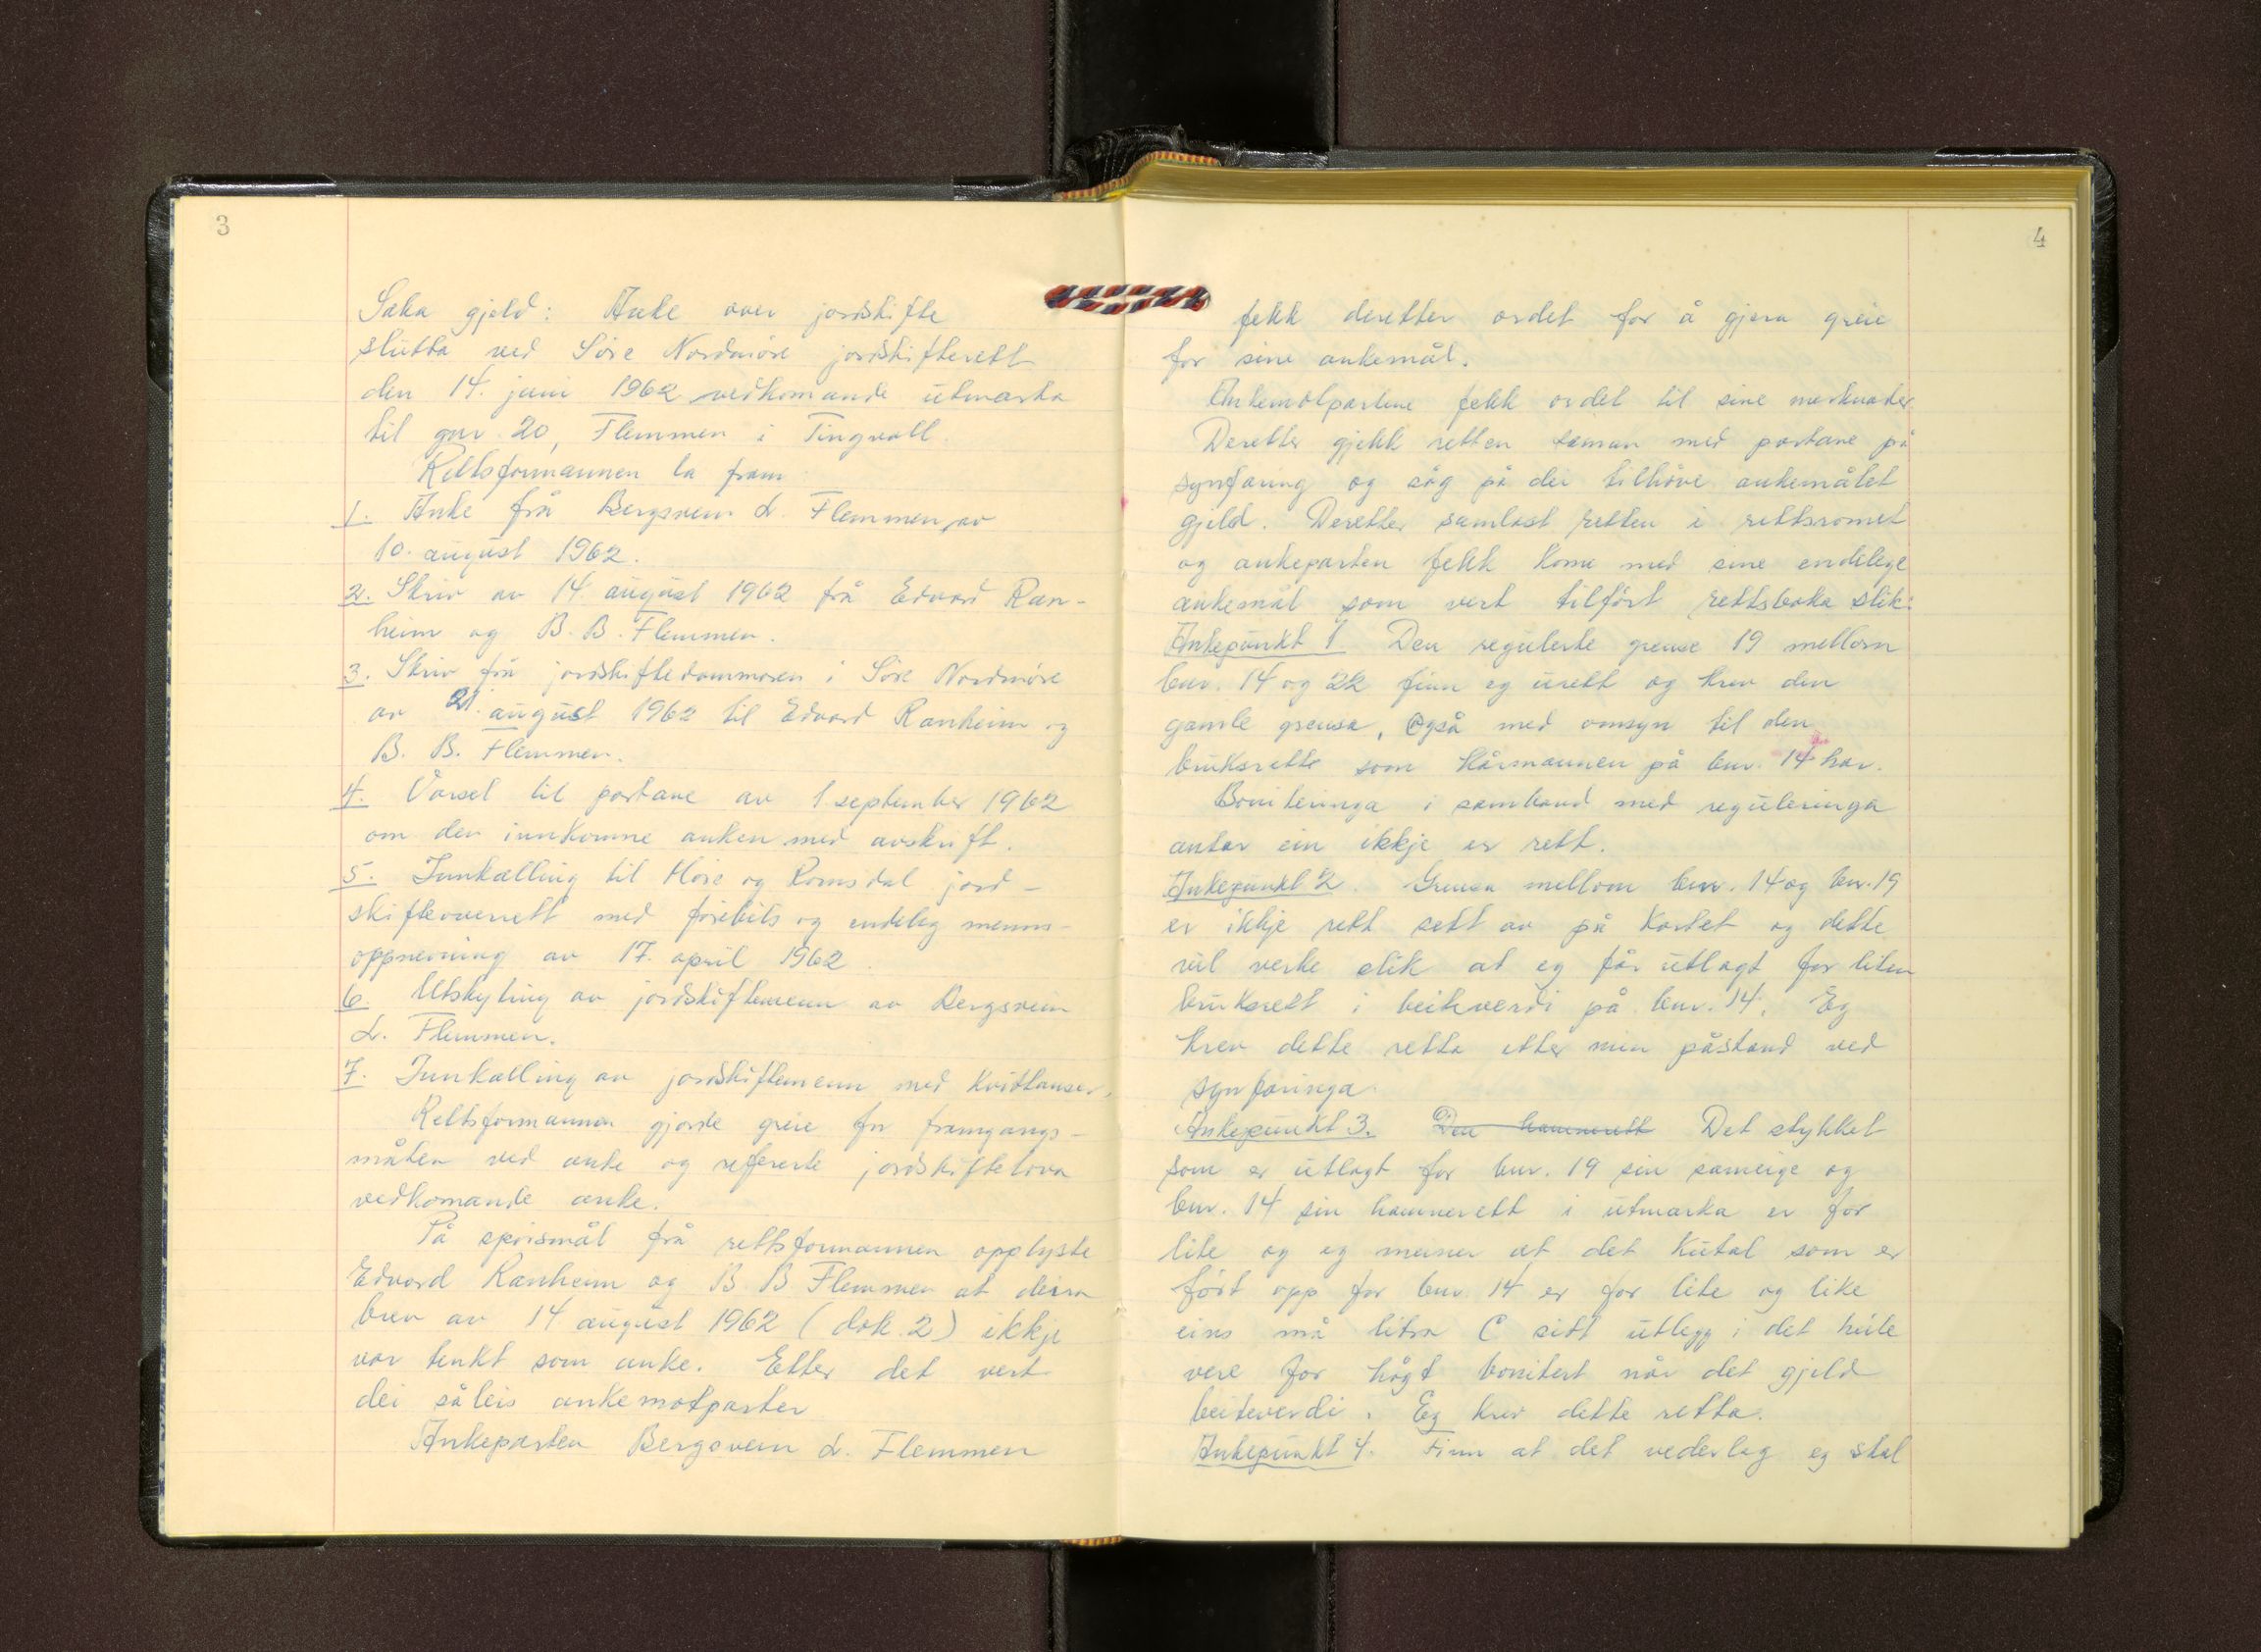 3
Saka gjeld: Anke over jordskifte
slutta ved Söre Nordmöre jordskifterett
den 14. juni 1962 vedkomande utmarka
til gnr. 20, Flemmen i Tingvoll.
Rettsformannen la fram
1. Anke frå Bergsvein L. Flemmen, av
10. august 1962.
2. Skriv av 14. august 1962 frå Edvard Ran-
heim og B. B. Flemmen.
3. Skriv frå jordskiftedommaren i Söre Nordmöre
av 21. august 1962 til Edvard Ranheim og
B. B. Flemmen.
4. Varsel til partane av 1. september 1962
om den innkomne anken med avskrift.
5. Innkalling til Möre og Romsdal jord-
skifteoverrett med förebils og endeleg menns-
oppnemning av 17. april 1962.
6. Utskyting av jordskiftemenn av Bergsvein
L. Flemmen.
7. Innkalling av jordskiftemenn med kvittanser.
Rettsformannen gjorde greie for framgangs-
måten ved anke og refererte jordskiftelova
vedkomande anke.
På spörsmål frå rettsformannen opplyste
Edvard Ranheim og B B Flemmen at deira
brev av 14 august 1962 (dok. 2) ikkje
var tenkt som anke. Etter det vert
dei såleis ankemotparter
Ankeparten Bergsvein L. Flemmen
4
fekk deretter ordet for å gjera greie
for sine ankemål.
Ankemotpartene fekk ordet til sine merknader.
Deretter gjekk retten saman med partane på
synfaring og såg på dei tilhöve ankemålet
gjeld. Deretter samlast retten i rettsromet
og ankeparten fekk kome med sine endelege
ankemål som vert tilfört rettsboka slik:
Ankepunkt 1 Den regulerte grense 19 mellom
bnr. 14 og 22 finn eg urett og krev den
gamle grensa, også med omsyn til den
bruksrette som kårmannen på bnr. 14 har.
Boniteringa i samband med reguleringa
antar ein ikkje er rett.
Ankepunkt 2. Grensa mellom bnr. 14 og bnr. 19
er ikkje rett sett av på kartet og dette
vil verke slik at eg får utlagt for liten
bruksrett i beiteverdi på bnr. 14. Eg
krev dette retta etter min påstand ved
synfaringa.
Ankepunkt 3. Den hamnerett Det stykket
som er utlagt for bnr. 19 sin sameige og
bnr. 14 sin hamnerett i utmarka er for
lite og eg meiner at det kutal som er
fört opp for bnr. 14 er for lite og like
eins må litra C sitt utlegg i det heile
vere for högt bonitert når det gjeld
beiteverdi. Eg krev dette retta.
Ankepunkt 4. Finn at det vederlag eg skal